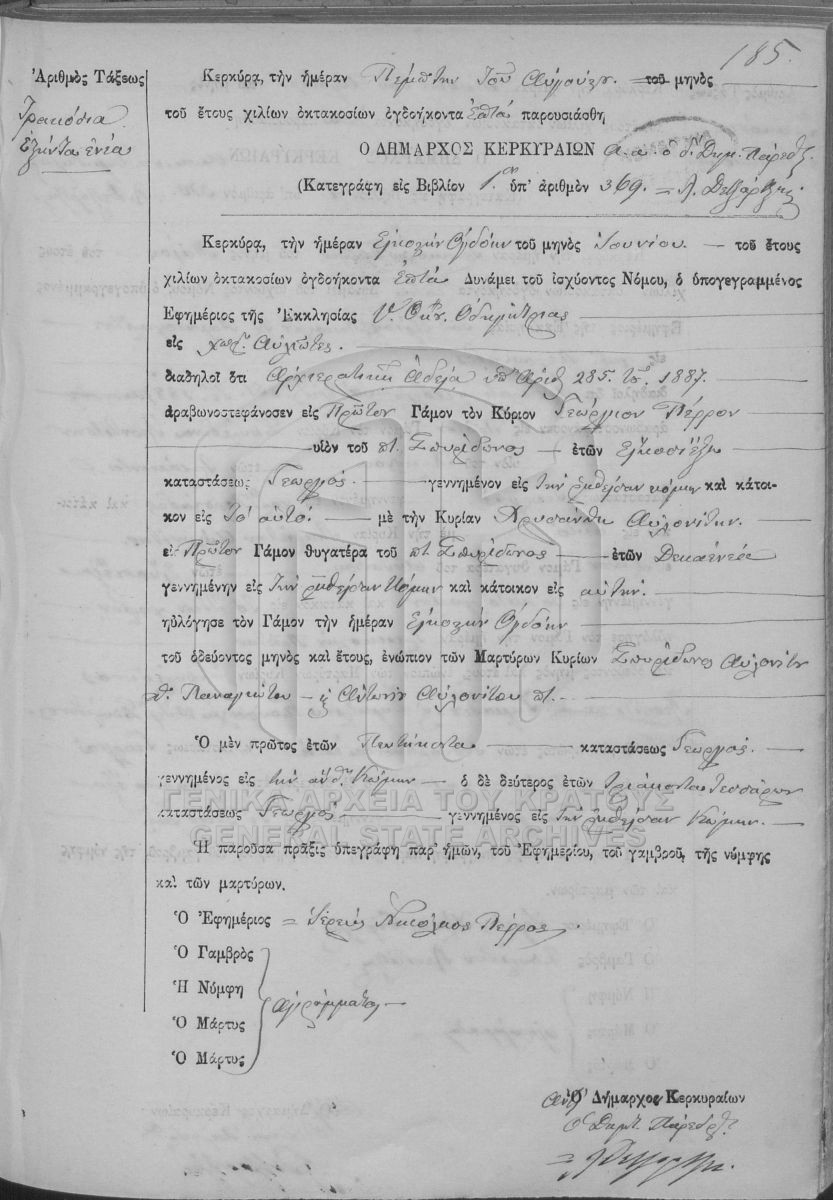 185.
Ἀριθμὸς Τάξεως
Τριακόσια
ἑξήντα ἐνέα
Κερκύρα, τὴν ἡμέραν Πέμπτην τοῦ Αὐγούστου. τοῦ μηνὸς
τοῦ ἔτους χιλίων ὀκτακοσίων ὀγδοήκοντα ἑπτά παρουσιάσθη
Ὁ ΔΗΜΑΡΧΟΣ ΚΕΡΚΥΡΑΙΩΝ α.α. ὁ Δημ. Πάρεδρ.
(Κατεγράφη εἰς Βιβλίον 1ον ὑπ' ἀριθμὸν 369.
Κερκύρα, τὴν ἡμέραν Εἰκοστὴν Ὀγδόην τοῦ μηνὸς Ἰουνίου. τοῦ ἔτους
χιλίων ὀκτακοσίων ὀγδοήκοντα ἑπτά Δυνάμει τοῦ ἰσχύοντος Νόμου, ὁ ὑπογεγραμμένος
Ἐφημέριος τῆς Ἐκκλησίας Ὑ. Θκου. Ὁδηγήτριας
εἰς χωρ. Αὐλιώτες.
διαδηλοῖ ὅτι Ἀρχιερατικῇ Ἀδείᾳ ὑπ' Ἀριθ 285. τοῦ 1887.
ἀραβωνοστεφάνοσεν εἰς Πρῶτον Γάμον τὸν Κύριον Γεώργιον Πέρρον
υἱὸν τοῦ π. Σπυρίδωνος ἐτῶν Εἰκοσιέξι
καταστάσεως Γεωργός. γεννημένον εἰς τὴν ῥηθεῖσαν κώμην καὶ κάτοι-
κον εἰς τὸ αὐτό. μὲ τὴν Κυρίαν Χρυσάνθη Αὐλονίτην.
εἰς Πρῶτον Γάμον θυγατέρα τοῦ π. Σπυρίδωνος ἐτῶν Δεκαενέα
γεννημένην εἰς τὴν ῥηθεῖσαν Κώμην καὶ κάτοικον εἰς αὐτήν.
ηὐλόγησε τὸν Γάμον τὴν ἡμέραν Εἰκοστὴν Ὀγδόην
τοῦ ὁδεύοντος μηνὸς καὶ ἔτους, ἐνώπιον τῶν Μαρτύρων Κυρίων Σπυρίδωνος Αὐλονίτου
Παναγιώτου Ἀντωνίου Αὐλονίτου π.
Ὁ μὲν πρῶτος ἐτῶν Πεντήκοντα καταστάσεως Γεωργός.
γεννημένος εἰς τὴν αὐτὴν Κώμην ὁ δὲ δεύτερος ἐτῶν τριάκοντα τεσσάρων
καταστάσεως Γεωργός γεννημένος εἰς τὴν ῥηθεῖσαν Κώμην.
ΓΕΝΙΚΑ ΑΡΧΕΙΑ ΤΟΥ ΚΡΑΤΟΥΣ
GENERAL STATE ARCHIVES
Ἡ παροῦσα πρᾶξις ὑπεγράφη παρ' ἡμῶν, τοῦ Ἐφημερίου, τοῦ γαμβροῦ, τῆς νύμφης
καὶ τῶν μαρτύρων.
Ὁ Ἐφημέριος = Ἱερεὺς Νικόλαος Πέρρος.
Ὁ Γαμβρὸς
Ἡ Νύμφη
ἀγράμματοι
Ὁ Μάρτυς
Ὁ Μάρτυς
Ὁ Δήμαρχος Κερκυραίων
ὁ Δημ. Πάρεδρ.